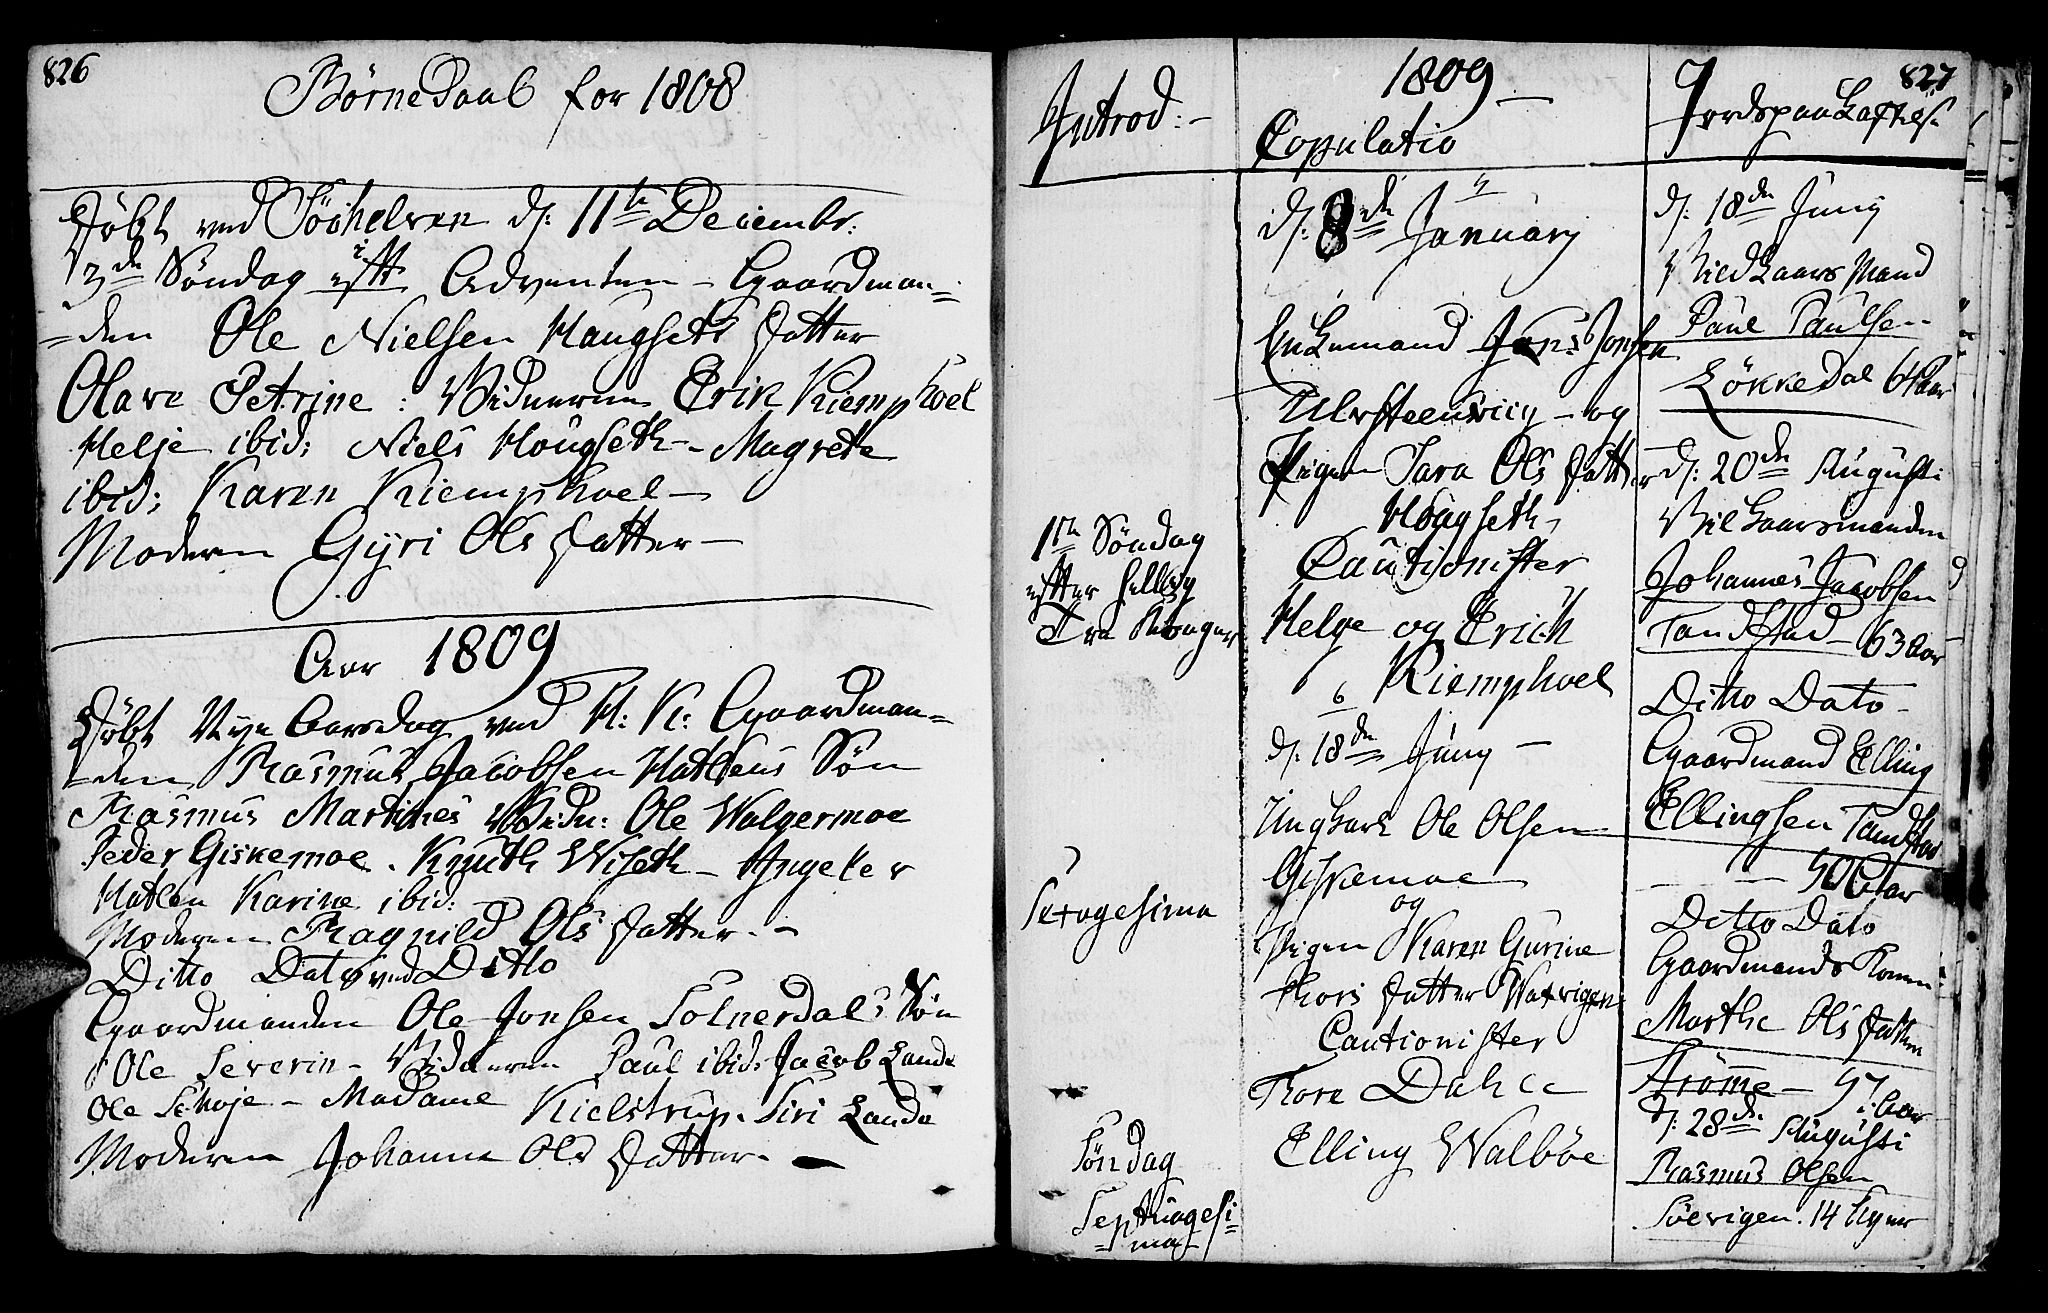 826
Børnedaab for 1808
Døbt ved Søchelven d: 11te Decembr:
3de Søndag i Adventen - Gaardman=
=den Ole Nielsen Haugseth Datter
Olave Petrine: Vidnerne Erik Kiemphoel
Helje ibid: Niels Hougseth - Magrete
ibid: Karen Kiemphoel -
Moderen Gyri Ols Datter -
Aar 1809
Døbt Nye Aarsdag ved H: K: Gaardman=
=den Rasmus Jacobsen Hatlens Søn
Rasmus Martines Vidn: Ole Walgermoe
Peder Giskemoe. Knuth Wiseth - Ingeler
Hatlen Karine ibid:
Moderen Ragnild Ols Datter. -
Ditto Dato ved Ditto
Gaardmanden Ole Jonsen Solnerdals Søn
Ole Severin - Vidneren Paul ibid: Jacob Lande
Ole Schoje - Madame Kielstrup. Siri Lande
Moderen Johanne Ols Datter. -
827
1809 -
Introd: -
1te Søndag
efter hellig
Tre Konger
Sexagesima
Søndag
Septuagesi=
=ma -
Copulatio
d: 8de January
Enkemand Jens Jonsen
Ulvsteensviig - og
Pigen Sara Ols Datter
Hougseth,
Cautionister
Helge og Erich
Kiemphoel
6
d: 18de Juny -
Ungkarl Ole Olsen
Giskemoe
og
Pigen Karen Gurine
Thors Datter Watrigen
Cautionister
Thore Dahle
Elling Walbøe
Jordspaakastelse
d: 18de Juny
Vilkaars Mand
Paul Paulsen
Løkkedal 64 Aar
d: 20de Augusti
Vilkaarsmanden
Johannes Jacobsen
Tandstad - 63 Aar
Ditto Dato -
Gaardmand Elling
Ellingsen Tandstad
- - 50 Aar
Ditto Dato
Gaardmands Kone
Marthe Ols Datter
Strømme - 57 Aar
d: 28de Augusti
Rasmus Olsen
Søevigen. 14 Uger